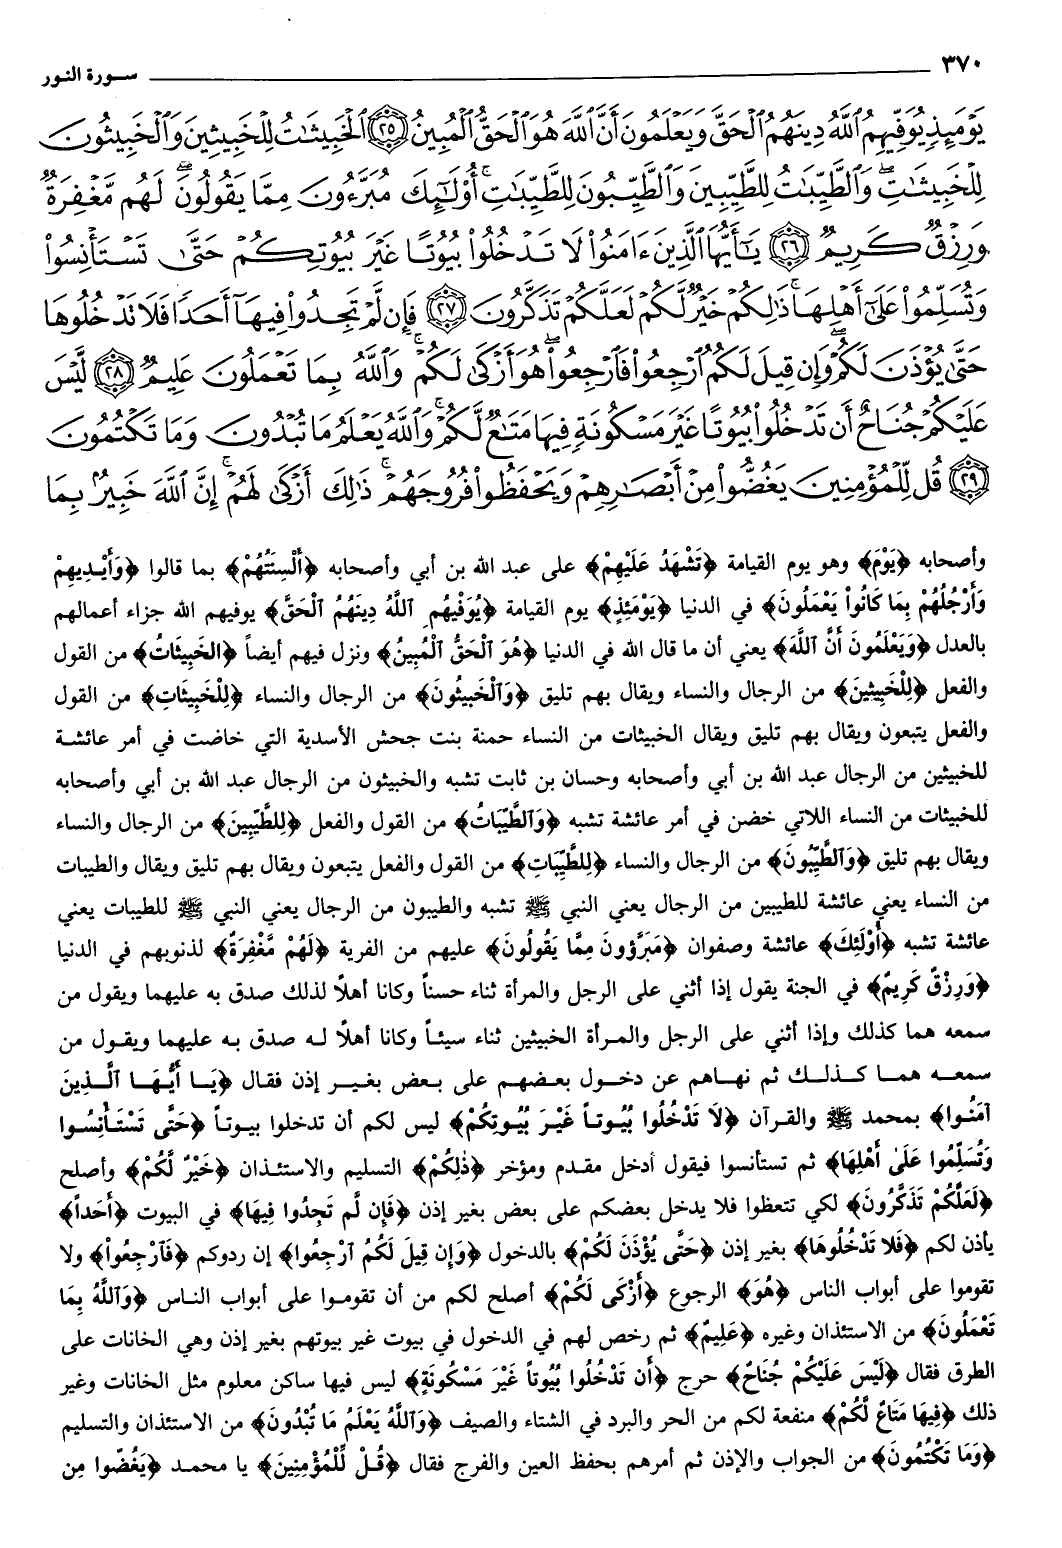 ٣٧٠ سورة النور
يَوْمَئِذٍ يُوَفِّيهِمُ ٱللَّهُ دِينَهُمُ ٱلْحَقَّ وَيَعْلَمُونَ أَنَّ ٱللَّهَ هُوَ ٱلْحَقُّ ٱلْمُبِينُ ﴿٢٥﴾ ٱلْخَبِيثَٰتُ لِلْخَبِيثِينَ وَٱلْخَبِيثُونَ
لِلْخَبِيثَٰتِ ۖ وَٱلطَّيِّبَٰتُ لِلطَّيِّبِينَ وَٱلطَّيِّبُونَ لِلطَّيِّبَٰتِ ۚ أُو۟لَٰٓئِكَ مُبَرَّءُونَ مِمَّا يَقُولُونَ ۖ لَهُم مَّغْفِرَةٌ
وَرِزْقٌ كَرِيمٌ ﴿٢٦﴾ يَٰٓأَيُّهَا ٱلَّذِينَ ءَامَنُوا۟ لَا تَدْخُلُوا۟ بُيُوتًا غَيْرَ بُيُوتِكُمْ حَتَّىٰ تَسْتَأْنِسُوا۟
وَتُسَلِّمُوا۟ عَلَىٰٓ أَهْلِهَا ۚ ذَٰلِكُمْ خَيْرٌ لَّكُمْ لَعَلَّكُمْ تَذَكَّرُونَ ﴿٢٧﴾ فَإِن لَّمْ تَجِدُوا۟ فِيهَآ أَحَدًا فَلَا تَدْخُلُوهَا
حَتَّىٰ يُؤْذَنَ لَكُمْ ۖ وَإِن قِيلَ لَكُمُ ٱرْجِعُوا۟ فَٱرْجِعُوا۟ ۖ هُوَ أَزْكَىٰ لَكُمْ ۚ وَٱللَّهُ بِمَا تَعْمَلُونَ عَلِيمٌ ﴿٢٨﴾ لَّيْسَ
عَلَيْكُمْ جُنَاحٌ أَن تَدْخُلُوا۟ بُيُوتًا غَيْرَ مَسْكُونَةٍ فِيهَا مَتَٰعٌ لَّكُمْ ۚ وَٱللَّهُ يَعْلَمُ مَا تُبْدُونَ وَمَا تَكْتُمُونَ
﴿٢٩﴾ قُل لِّلْمُؤْمِنِينَ يَغُضُّوا۟ مِنْ أَبْصَٰرِهِمْ وَيَحْفَظُوا۟ فُرُوجَهُمْ ۚ ذَٰلِكَ أَزْكَىٰ لَهُمْ ۗ إِنَّ ٱللَّهَ خَبِيرٌۢ بِمَا
وأصحابه ﴿يَوْمَ﴾ وهو يوم القيامة ﴿تَشْهَدُ عَلَيْهِمْ﴾ على عبد الله بن أبي وأصحابه ﴿أَلْسِنَتُهُمْ﴾ بما قالوا ﴿وَأَيْدِيهِمْ
وَأَرْجُلُهُمْ بِمَا كَانُوا يَعْمَلُونَ﴾ في الدنيا ﴿يَوْمَئِذٍ﴾ يوم القيامة ﴿يُوَفِّيهُمِ اللَّهُ دِينَهُمُ الْحَقَّ﴾ يوفيهم الله جزاء أعمالهم
بالعدل ﴿وَيَعْلَمُونَ أَنَّ اللَّهَ﴾ يعني أن ما قال الله في الدنيا ﴿هُوَ الْحَقُّ الْمُبِينُ﴾ ونزل فيهم أيضاً ﴿الخَبِيثَاتُ﴾ من القول
والفعل ﴿لِلْخَبِيثِينَ﴾ من الرجال والنساء ويقال بهم تليق ﴿وَالْخَبِيثُونَ﴾ من الرجال والنساء ﴿لِلْخَبِيثَاتِ﴾ من القول
والفعل يتبعون ويقال بهم تليق ويقال الخبيثات من النساء حمنة بنت جحش الأسدية التي خاضت في أمر عائشة
للخبيثين من الرجال عبد الله بن أبي وأصحابه وحسان بن ثابت تشبه والخبيثون من الرجال عبد الله بن أبي وأصحابه
للخبيثات من النساء اللاتي خضن في أمر عائشة تشبه ﴿وَالطَّيِّبَاتُ﴾ من القول والفعل ﴿لِلطَّيِّبِينَ﴾ من الرجال والنساء
ويقال بهم تليق ﴿وَالطَّيِّبُونَ﴾ من الرجال والنساء ﴿لِلطَّيِّبَاتِ﴾ من القول والفعل يتبعون ويقال بهم تليق ويقال والطيبات
من النساء يعني عائشة للطيبين من الرجال يعني النبي ﷺ تشبه والطيبون من الرجال يعني النبي ﷺ للطيبات يعني
عائشة تشبه ﴿أُوْلَئِكَ﴾ عائشة وصفوان ﴿مُبَرَّؤونَ مِمَّا يَقُولُونَ﴾ عليهم من الفرية ﴿لَهُمْ مَّغْفِرَةٌ﴾ لذنوبهم في الدنيا
﴿وَرِزْقٌ كَرِيمٌ﴾ في الجنة يقول إذا أثني على الرجل والمرأة ثناء حسناً وكانا أهلًا لذلك صدق به عليهما ويقول من
سمعه هما كذلك وإذا أثني على الرجل والمرأة الخبيثين ثناء سيئاً وكانا أهلًا له صدق به عليهما ويقول من
سمعه هما كذلك ثم نهاهم عن دخول بعضهم على بعض بغير إذن فقال ﴿يَا أَيُّهَا الَّذِينَ
آمَنُوا﴾ بمحمد ﷺ والقرآن ﴿لَا تَدْخُلُوا بُيُوتاً غَيْرَ بُيُوتِكُمْ﴾ ليس لكم أن تدخلوا بيوتاً ﴿حَتَّى تَسْتَأْنِسُوا
وَتُسَلِّمُوا عَلَىٰ أَهْلِهَا﴾ ثم تستأنسوا فيقول أدخل مقدم ومؤخر ﴿ذٰلِكُمْ﴾ التسليم والاستئذان ﴿خَيْرٌ لَّكُمْ﴾ وأصلح
﴿لَعَلَّكُمْ تَذَكَّرُونَ﴾ لكي تتعظوا فلا يدخل بعضكم على بعض بغير إذن ﴿فَإِن لَّم تَجِدُوا فِيهَا﴾ في البيوت ﴿أَحَداً﴾
يأذن لكم ﴿فَلَا تَدْخُلُوهَا﴾ بغير إذن ﴿حَتَّى يُؤْذَنَ لَكُمْ﴾ بالدخول ﴿وَإِن قِيلَ لَكُمُ ارْجِعُوا﴾ إن ردوكم ﴿فَارْجِعُوا﴾ ولا
تقوموا على أبواب الناس ﴿هُوَ﴾ الرجوع ﴿أَزْكَى لَكُمْ﴾ أصلح لكم من أن تقوموا على أبواب الناس ﴿وَاللَّهُ بِمَا
تَعْمَلُونَ﴾ من الاستئذان وغيره ﴿عَلِيمٌ﴾ ثم رخص لهم في الدخول في بيوت غير بيوتهم بغير إذن وهي الخانات على
الطرق فقال ﴿لَيْسَ عَلَيْكُمْ جُنَاحٌ﴾ حرج ﴿أَن تَدْخُلُوا بُيُوتاً غَيْرَ مَسْكُونَةٍ﴾ ليس فيها ساكن معلوم مثل الخانات وغير
ذلك ﴿فِيهَا مَتَاعٌ لَّكُمْ﴾ منفعة لكم من الحر والبرد في الشتاء والصيف ﴿وَاللَّهُ يَعْلَمُ مَا تُبْدُونَ﴾ من الاستئذان والتسليم
﴿وَمَا تَكْتُمُونَ﴾ من الجواب والإذن ثم أمرهم بحفظ العين والفرج فقال ﴿قُلْ لِّلْمُؤْمِنِينَ﴾ يا محمد ﴿يَغُضّوا مِن